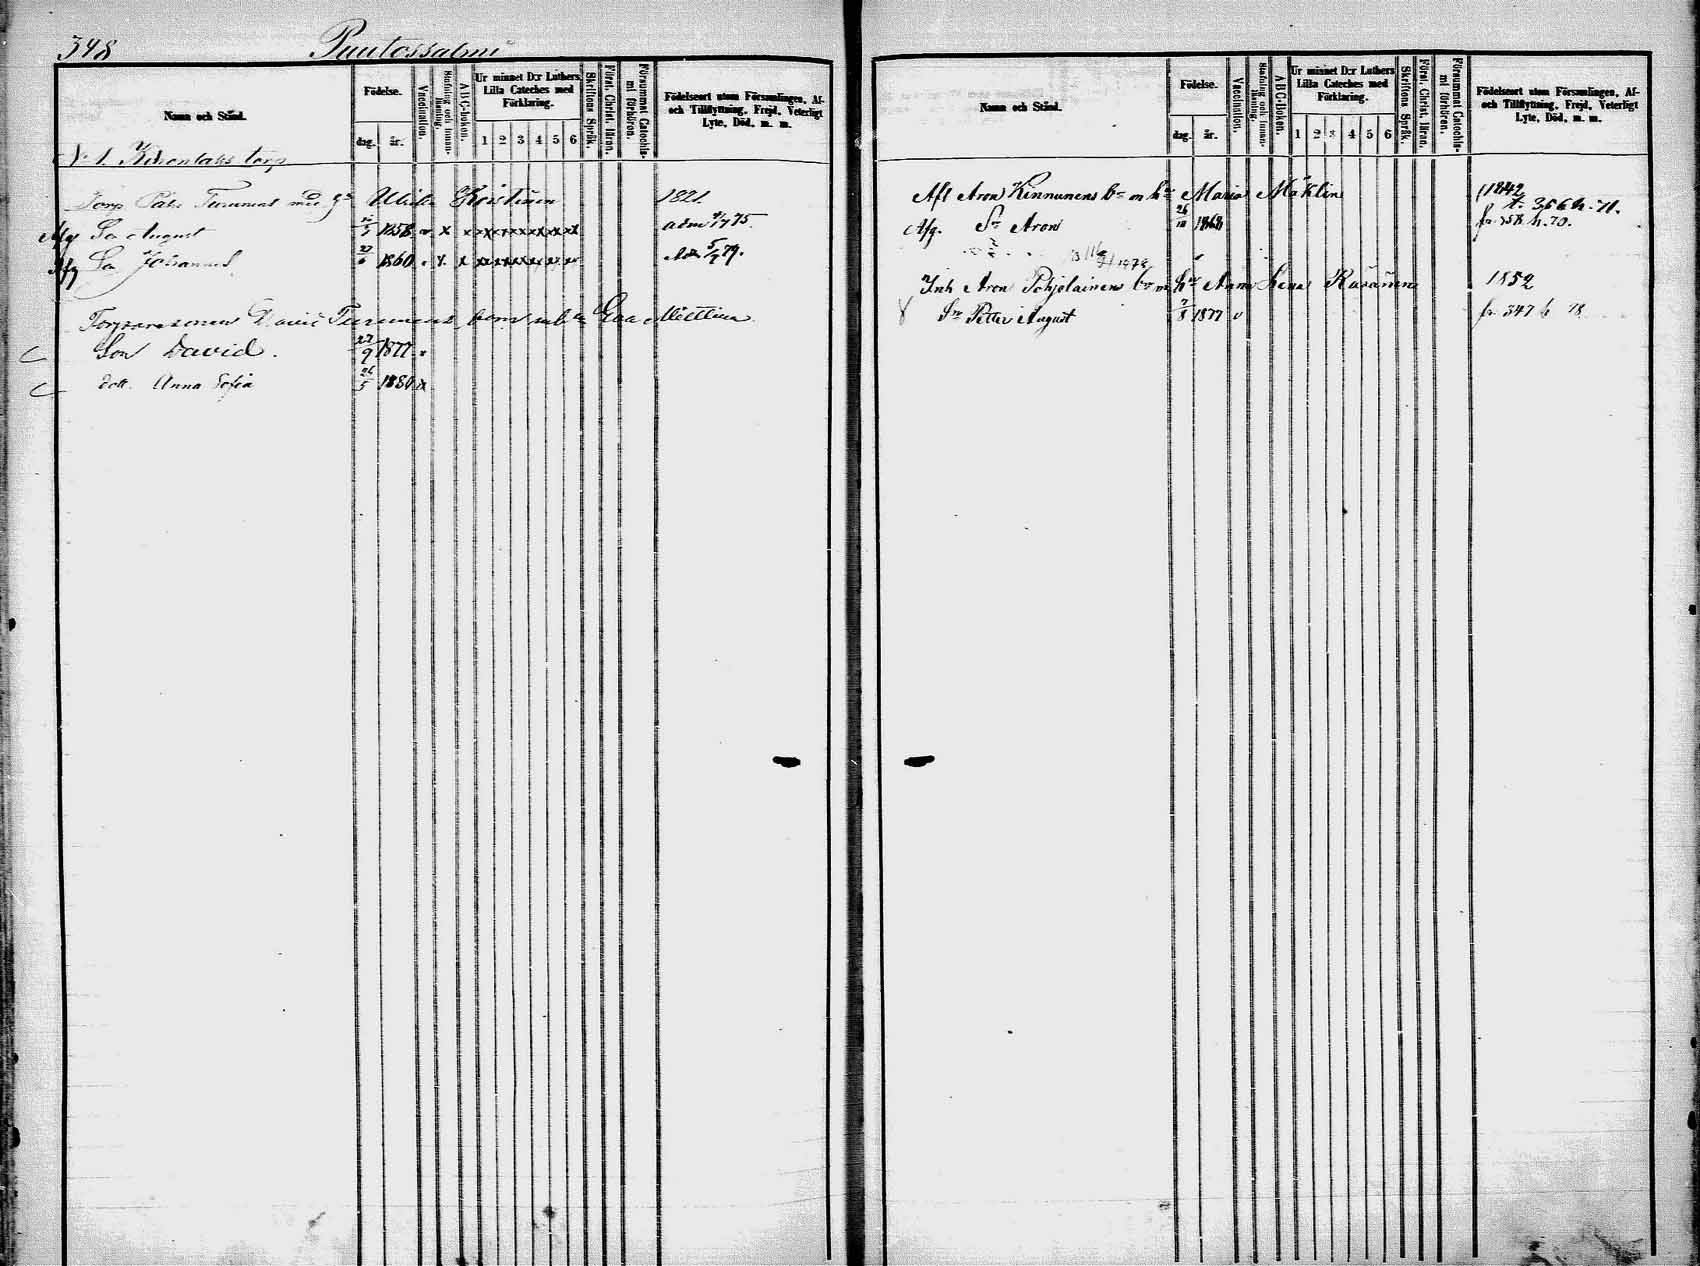 348 Puutossalmi
Namn och Stånd.
Födelse.
dag. år.
Vaccination.
Stafning och Innan-läsning.
ABC-boken.
Ur minnet D:r Luthers Lilla Cateches med Förklaring.
1 2 3 4 5 6
Skriftens Språk.
Först. Christ. läran.
Försummat Catechis-mi förhören.
Födelseort utom Församlingen, Af-
och Tillflyttning, Frejd, Veterligt
Lyte, Död, m. m.
N:o 1. torp
Torp. Turunens med Ulrika Kristina 1821.
Afg So August 1858 x x x x x x x x x adm 75
Afg So Johannes 27/6 1860 x x x x x x x x Adm 5/7 79.
Torparesonen David Turunens barn m h:n Eva Miettinen
Son David. 27/9 1877
dott. Anna Sofia 26/5 1880
Namn och Stånd.
Födelse.
dag. år.
Vaccination.
Stafning och Innan-läsning.
ABC-boken.
Ur minnet D:r Luthers
Lilla Cateches med
Förklaring.
1 2 3 4 5 6
Skriftens Språk.
Först. Christ. läran.
Försummat Catechis-mi förhören.
Födelseort utom Församlingen, Af-
och Tillflyttning, Frejd, Veterligt
Lyte, Död, m. m.
Afl Aron Kinnunens b:n m h:u Maria Mäklin 1842
t. 366 h. 71.
Afg. S:n Aron 26/10 1868 fr. 358 h. 70.
Inh Aron Pohjolainens b:n m h:u Anna Lena Räsänen 1852
S:n Petter August 7/8 1877 v fr. 347 h 78